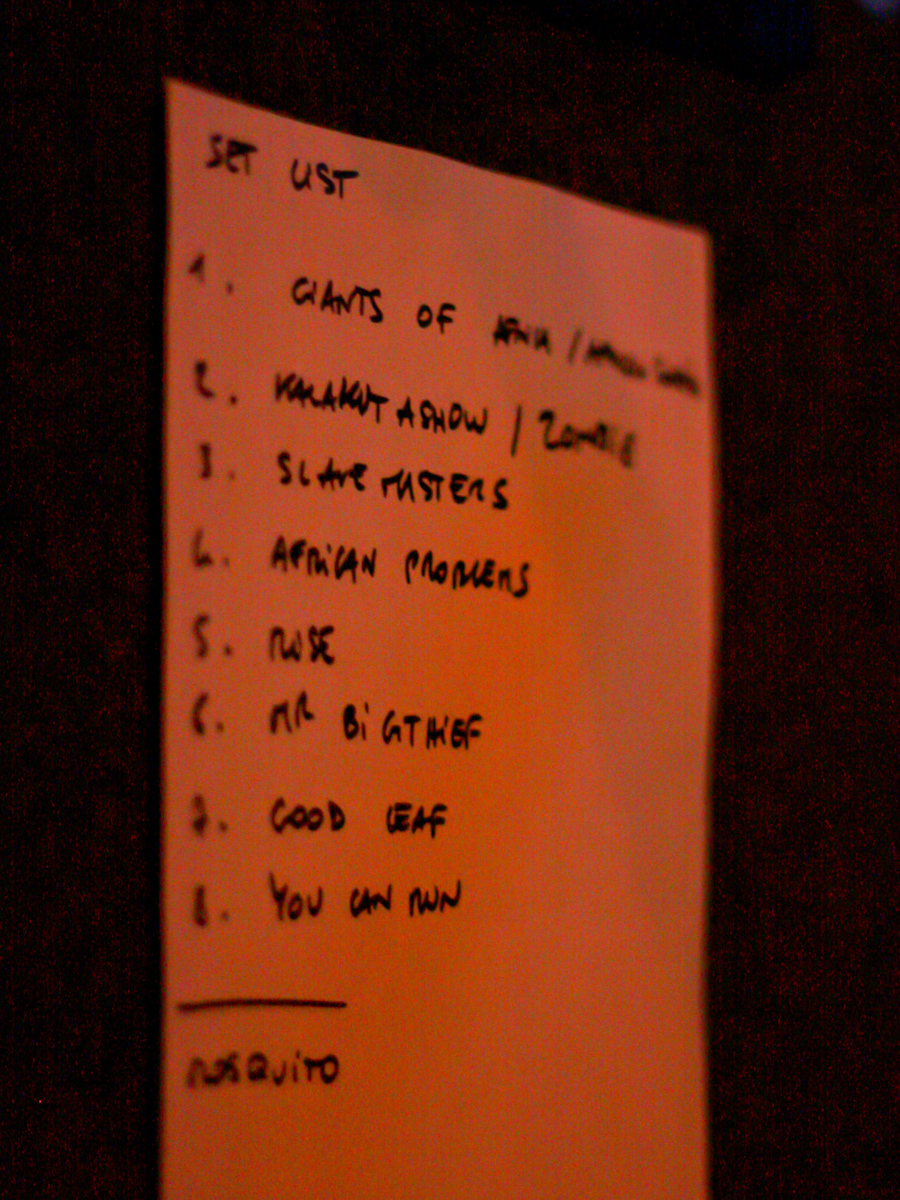 SET LIST
1. GIANTS OF AFRICA /
2. KALAKUTA SHOW / ZOMBIE
3. SLAVE MASTERS
4. AFRICAN PROBLEMS
5. ROSE
6. MR BIG THIEF
7. GOOD LEAF
8. YOU CAN RUN
MOSQUITO